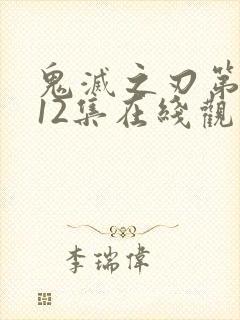 鬼滅之刃第
12集在綫觀
李瑞偉